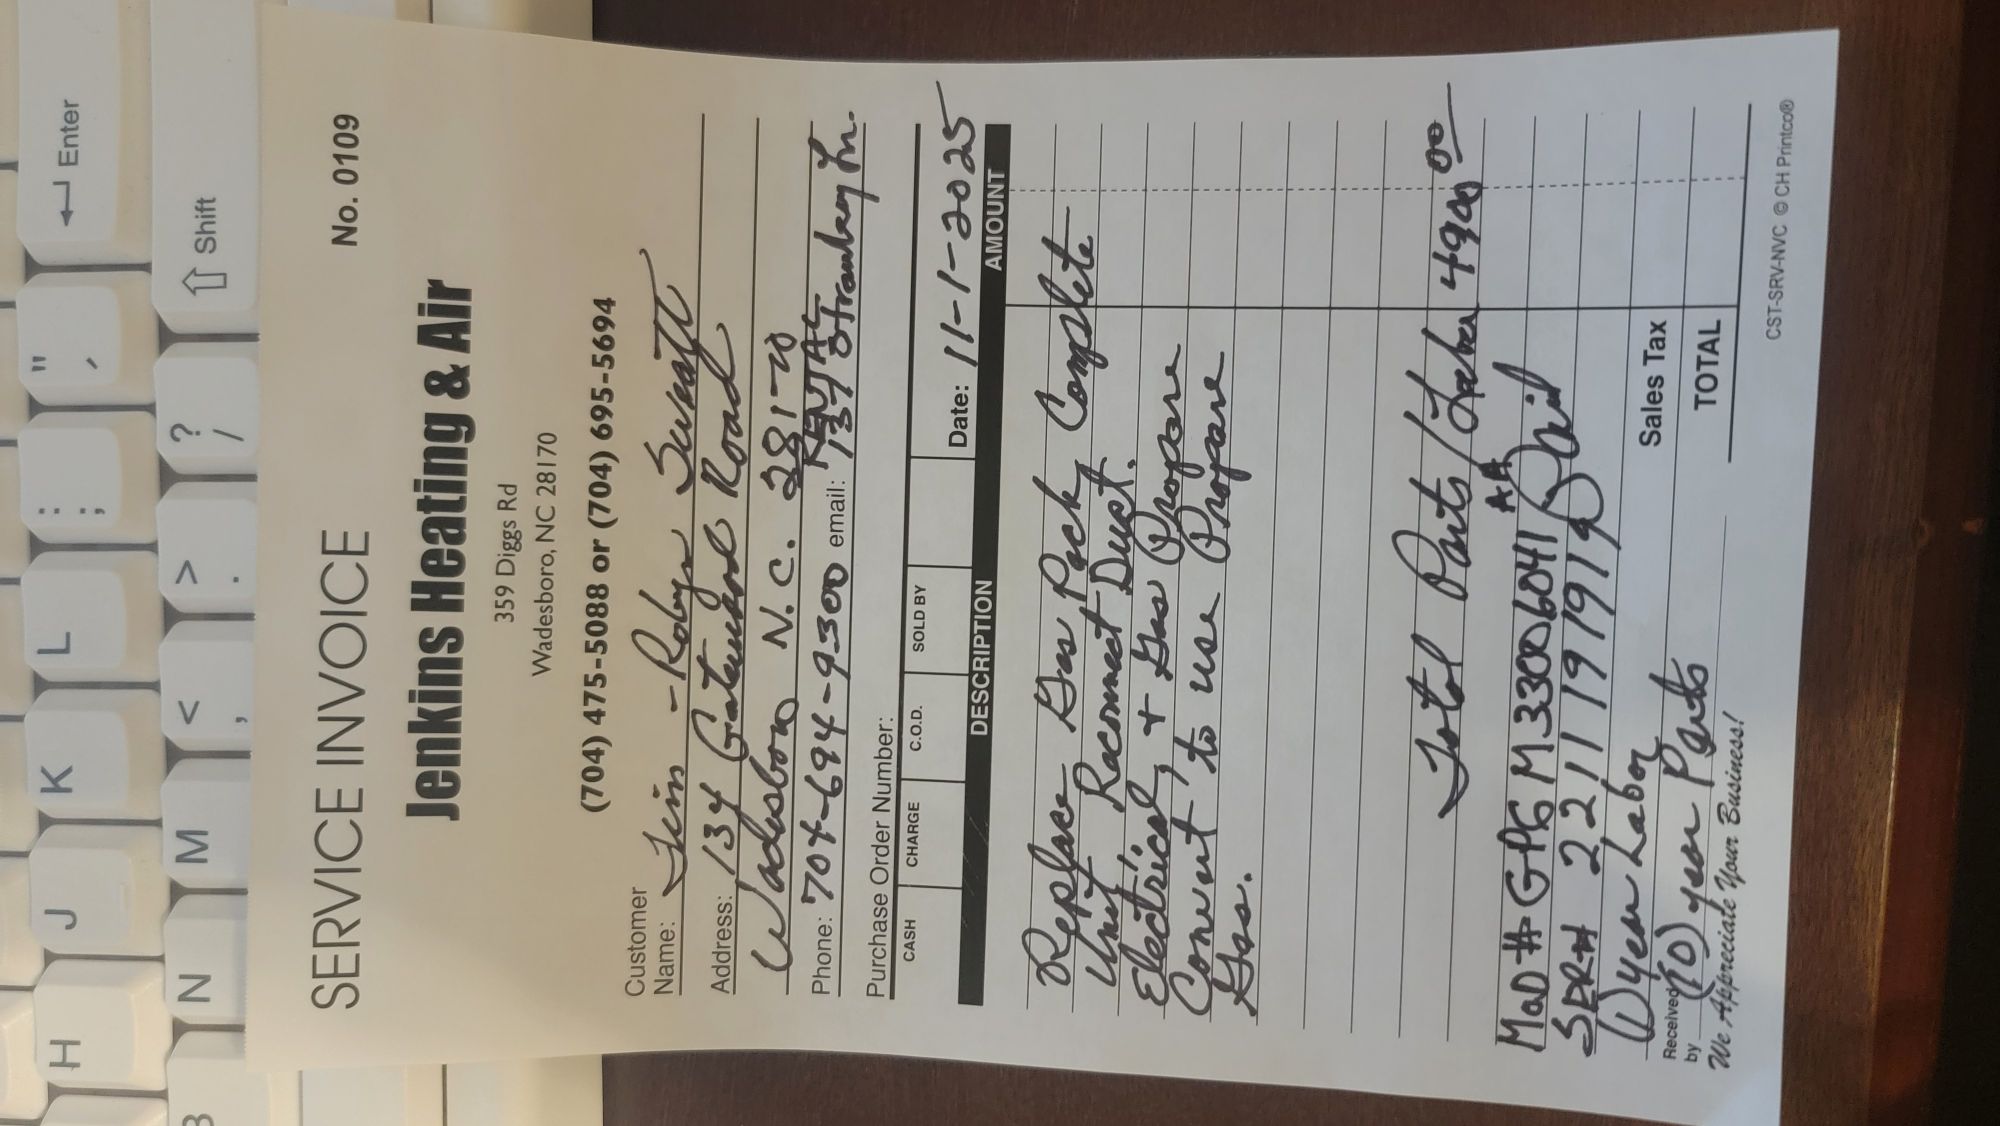 SERVICE INVOICE
No. 0109
Jenkins Heating & Air
359 Diggs Rd
Wadesboro, NC 28170
(704) 475-5088 or (704) 695-5694
Customer
Name: Tim - Robyn
Address: 134 Gatewood Road
Wadesboro N.C. 28170
RENTAL
Phone: 704-694-9300 email: 137 Strawberry Ln.
Purchase Order Number:
CASH CHARGE C.O.D. SOLD BY Date: 11-1-2025
DESCRIPTION AMOUNT
Replace Gas Pack Complete
Unit, Reconnect Duct.
Electrical, + Gas Propane
Convert to use Propane
Gas.
Total Parts/Labor 4900 00
MOD # GPGM33006041 AA
SER# 2211197919 Paid
(1) year Labor
(10) year Parts
Sales Tax
TOTAL
Received
by
We Appreciate Your Business!
CST-SRV-NVC © CH Printco®
Enter
Shift
"
'
:
;
?
/
>
.
<
,
L
K
J
H
M
N
B